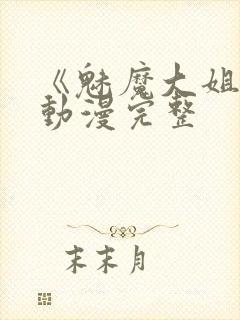 《魅魔大姐
動漫完整
末末月